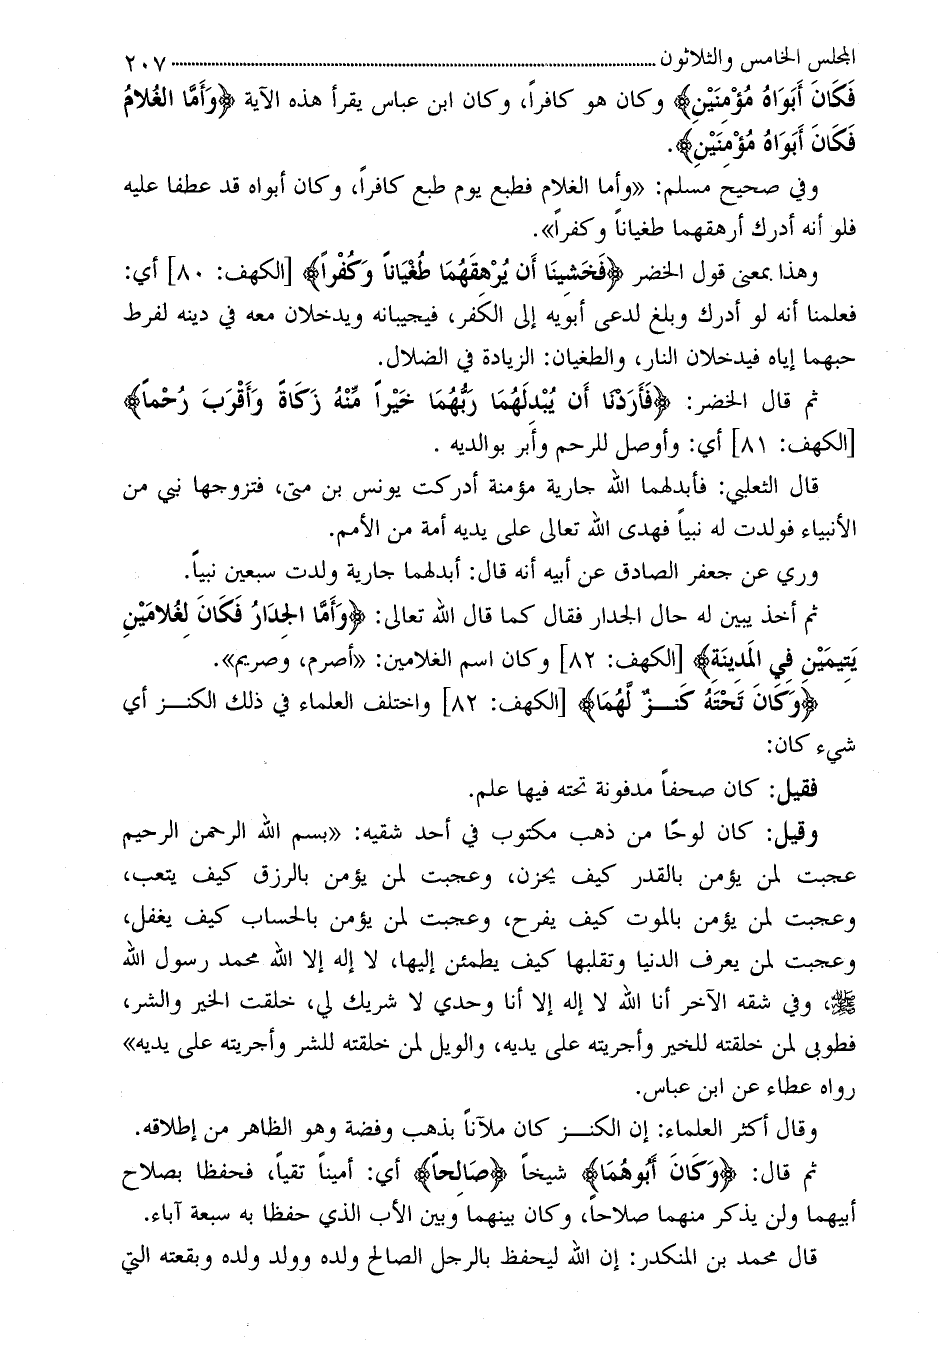 المجلس الخامس والثلاثون ............................................................ ٢٠٧
فَكَانَ أَبَوَاهُ مُؤْمِنَيْنِ﴾ وكان هو كافراً، وكان ابن عباس يقرأ هذه الآية ﴿وَأَمَّا الغُلامُ
فَكَانَ أَبَوَاهُ مُؤْمِنَيْنِ﴾.
وفي صحيح مسلم: «وأما الغلام فطبع يوم طبع كافراً، وكان أبواه قد عطفا عليه
فلو أنه أدرك أرهقهما طغياناً وكفراً».
وهذا بمعنى قول الخضر ﴿فَخَشِينَا أَن يُرْهِقَهُمَا طُغْيَاناً وَكُفْراً﴾ [الكهف: ٨٠] أي:
فعلمنا أنه لو أدرك وبلغ لدعى أبويه إلى الكفر، فيجيبانه ويدخلان معه في دينه لفرط
حبهما إياه فيدخلان النار، والطغيان: الزيادة في الضلال.
ثم قال الخضر: ﴿فَأَرَدْنَا أَن يُبْدِلَهُمَا رَبُّهُمَا خَيْراً مِّنْهُ زَكَاةً وَأَقْرَبَ رُحْماً﴾
[الكهف: ٨١] أي: وأوصل للرحم وأبر بوالديه .
قال الثعلبي: فأبدلهما الله جارية مؤمنة أدركت يونس بن متى، فتزوجها نبي من
الأنبياء فولدت له نبياً فهدى الله تعالى على يديه أمة من الأمم.
وري عن جعفر الصادق عن أبيه أنه قال: أبدلهما جارية ولدت سبعين نبياً.
ثم أخذ يبين له حال الجدار فقال كما قال الله تعالى: ﴿وَأَمَّا الجِدَارُ فَكَانَ لِغُلامَيْنِ
يَتِيمَيْنِ فِي المَدِينَةِ﴾ [الكهف: ٨٢] وكان اسم الغلامين: «أصرم، وصريم».
﴿وَكَانَ تَحْتَهُ كَنـزٌ لَّهُمَا﴾ [الكهف: ٨٢] واختلف العلماء في ذلك الكنـز أي
شيء كان:
فقيل: كان صحفاً مدفونة تحته فيها علم.
وقيل: كان لوحًا من ذهب مكتوب في أحد شقيه: «بسم الله الرحمن الرحيم
عجبت لمن يؤمن بالقدر كيف يحزن، وعجبت لمن يؤمن بالرزق كيف يتعب،
وعجبت لمن يؤمن بالموت كيف يفرح، وعجبت لمن يؤمن بالحساب كيف يغفل،
وعجبت لمن يعرف الدنيا وتقلبها كيف يطمئن إليها، لا إله إلا الله محمد رسول الله
ﷺ، وفي شقه الآخر أنا الله لا إله إلا أنا وحدي لا شريك لي، خلقت الخير والشر،
فطوبى لمن خلقته للخير وأجريته على يديه، والويل لمن خلقته للشر وأجريته على يديه»
رواه عطاء عن ابن عباس.
وقال أكثر العلماء: إن الكنـز كان ملآناً بذهب وفضة وهو الظاهر من إطلاقه.
ثم قال: ﴿وَكَانَ أَبُوهُمَا﴾ شيخاً ﴿صَالِحاً﴾ أي: أميناً تقياً، فحفظا بصلاح
أبيهما ولن يذكر منهما صلاحاً، وكان بينهما وبين الأب الذي حفظا به سبعة آباء.
قال محمد بن المنكدر: إن الله ليحفظ بالرجل الصالح ولده وولد ولده وبقعته التي